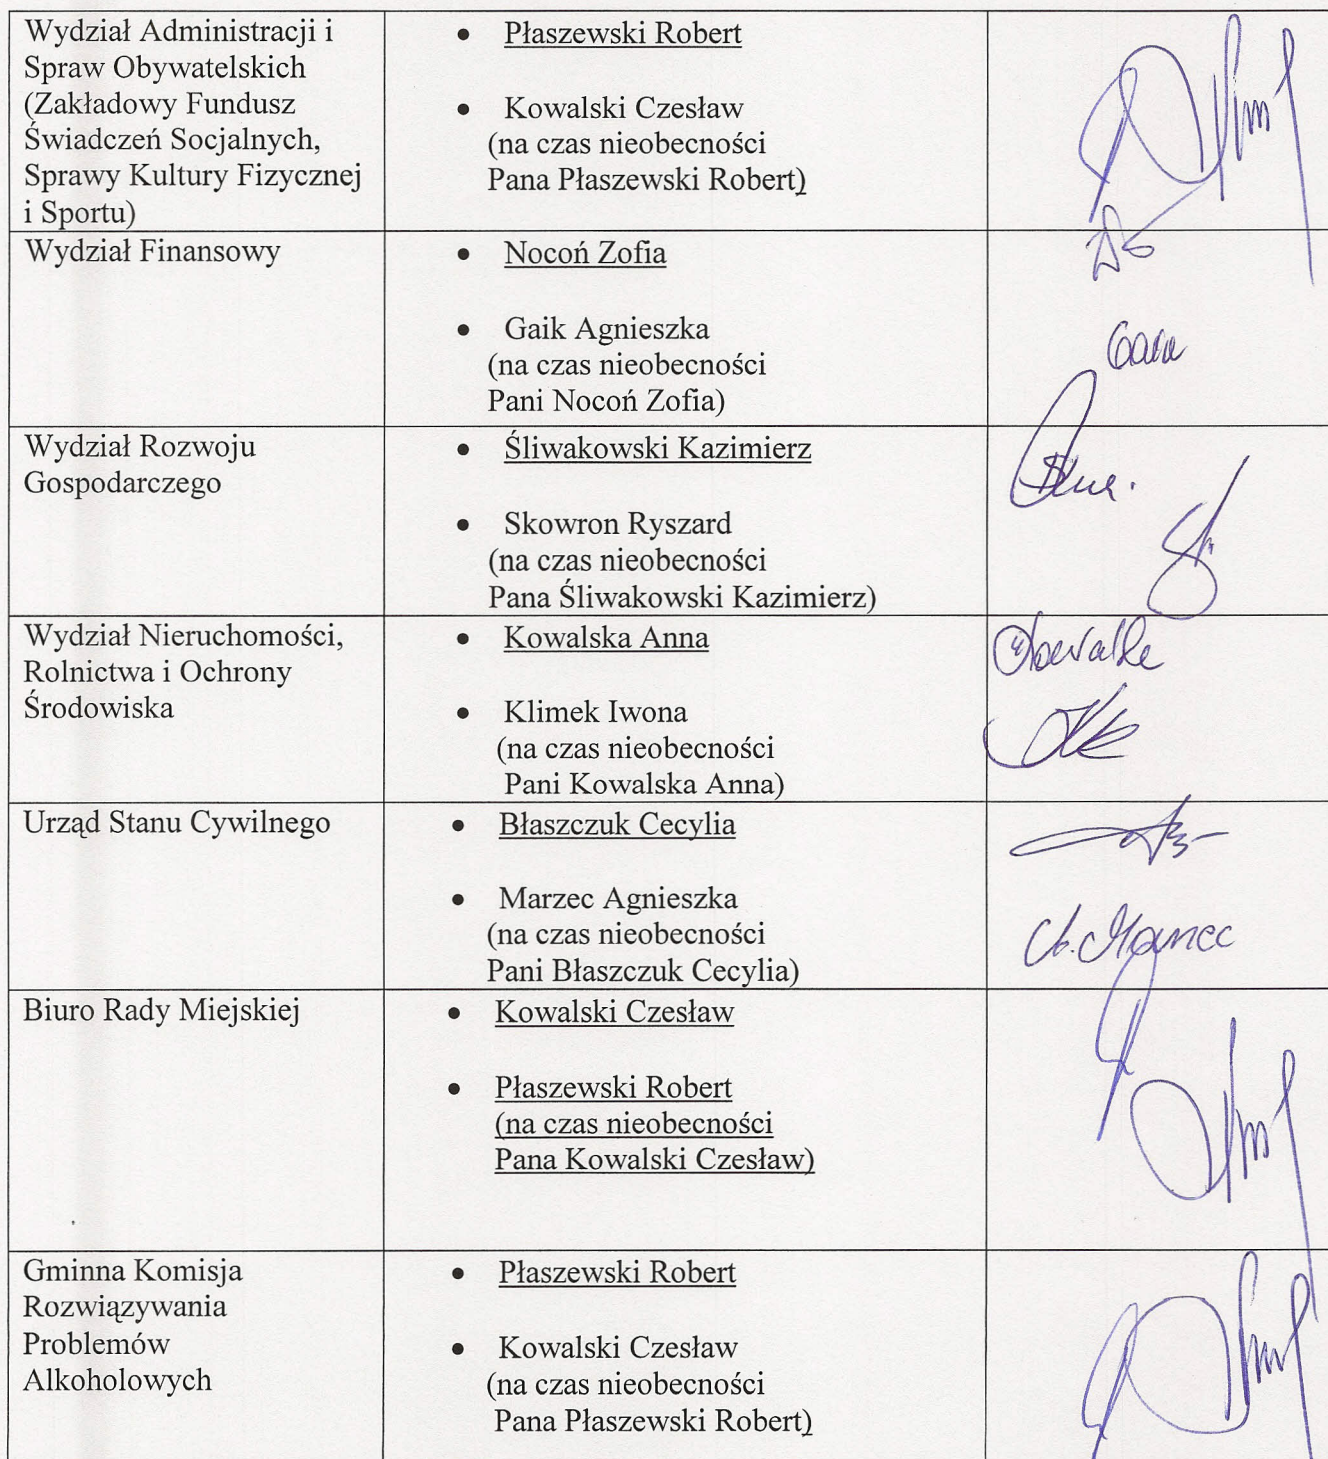 Wydział Administracji i
Spraw Obywatelskich
(Zakładowy Fundusz
Świadczeń Socjalnych,
Sprawy Kultury Fizycznej
i Sportu)
• Płaszewski Robert
• Kowalski Czesław
(na czas nieobecności
Pana Płaszewski Robert)
Wydział Finansowy
• Nocoń Zofia
• Gaik Agnieszka
(na czas nieobecności
Pani Nocoń Zofia)
Wydział Rozwoju
Gospodarczego
• Śliwakowski Kazimierz
• Skowron Ryszard
(na czas nieobecności
Pana Śliwakowski Kazimierz)
Wydział Nieruchomości,
Rolnictwa i Ochrony
Środowiska
• Kowalska Anna
• Klimek Iwona
(na czas nieobecności
Pani Kowalska Anna)
Urząd Stanu Cywilnego
• Błaszczuk Cecylia
• Marzec Agnieszka
(na czas nieobecności
Pani Błaszczuk Cecylia)
Biuro Rady Miejskiej
• Kowalski Czesław
• Płaszewski Robert
(na czas nieobecności
Pana Kowalski Czesław)
Gminna Komisja
Rozwiązywania
Problemów
Alkoholowych
• Płaszewski Robert
• Kowalski Czesław
(na czas nieobecności
Pana Płaszewski Robert)